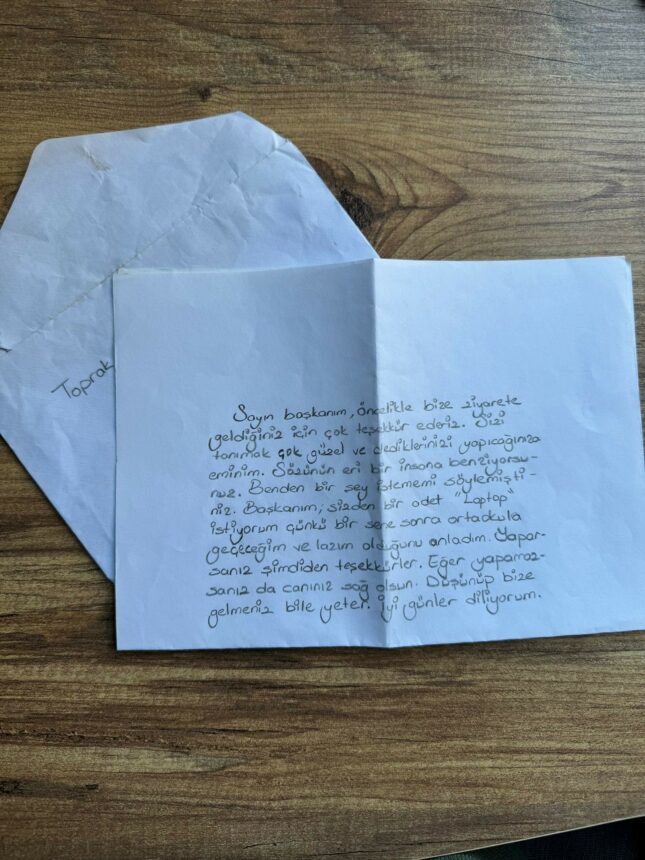 Toprak
Sayın başkanım, öncelikle bize ziyarete
geldiğiniz için çok teşekkür ederiz. Sizi
tanımak çok güzel ve dediklerinizi yapıcağınıza
eminim. Sözünün eri bir insana benziyorsu-
nuz. Benden bir şey istememi söylemişti-
niz. Başkanım, sizden bir adet "Laptop"
istiyorum çünkü bir sene sonra ortaokula
geçeceğim ve lazım olduğunu anladım. Yapar-
sanız şimdiden teşekkürler. Eğer yapamaz-
sanız da canınız sağ olsun. Düşünüp bize
gelmeniz bile yeter. İyi günler diliyorum.